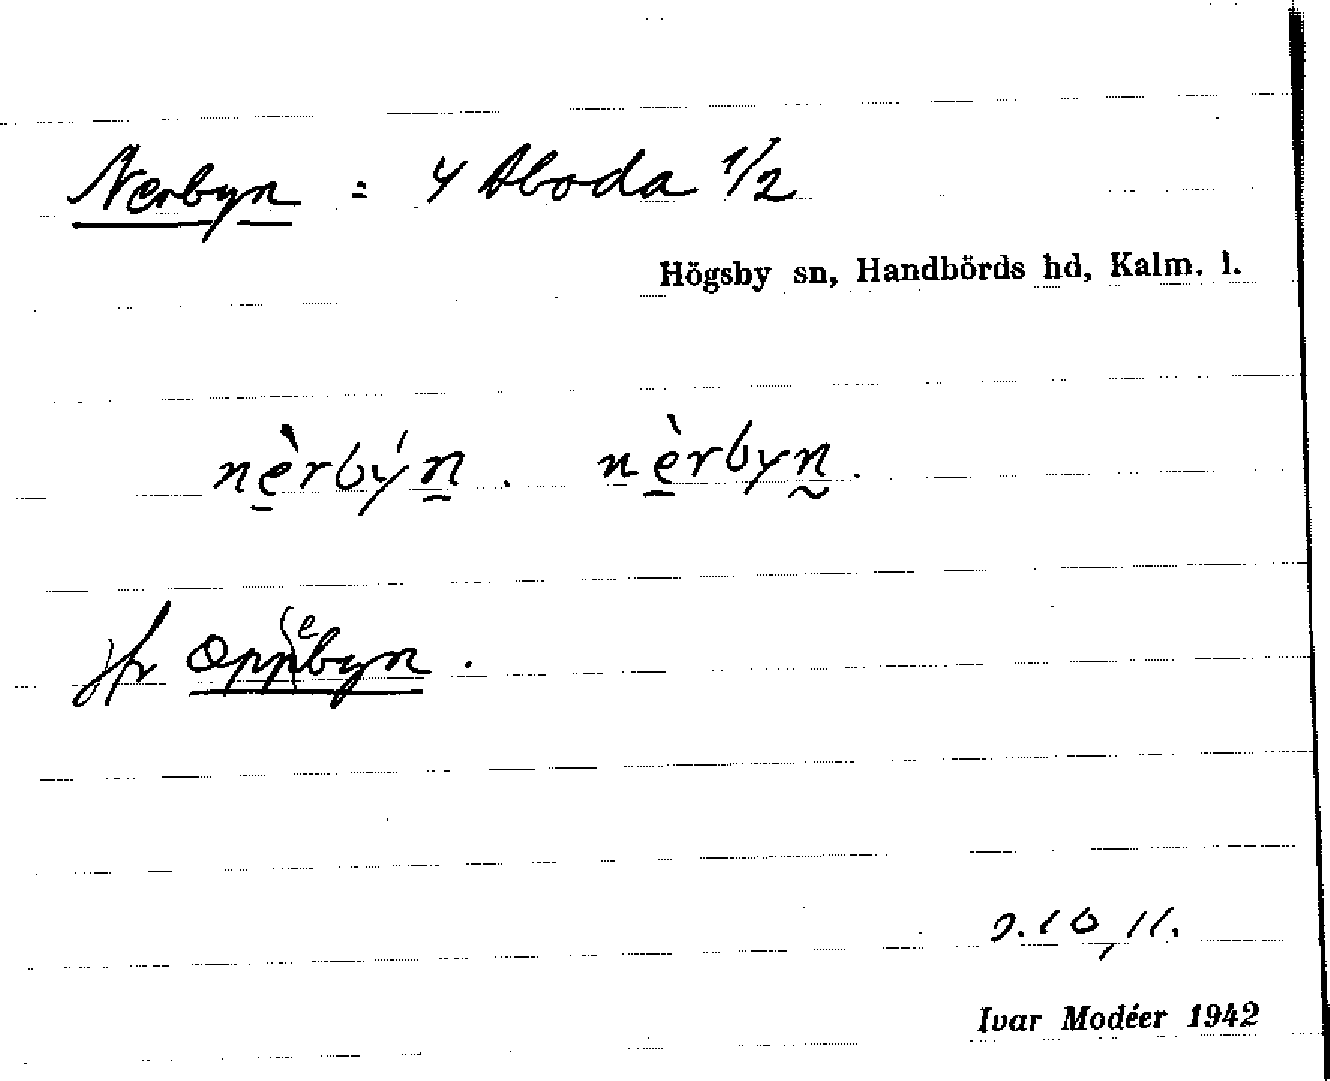 Nerbyn = 4 Aboda 1/2
Högsby sn, Handbörds hd, Kalm. l.
nèrbýn. nèrbyn.
jfr Oppebyn.
10, 11.
Ivar Modéer 1942